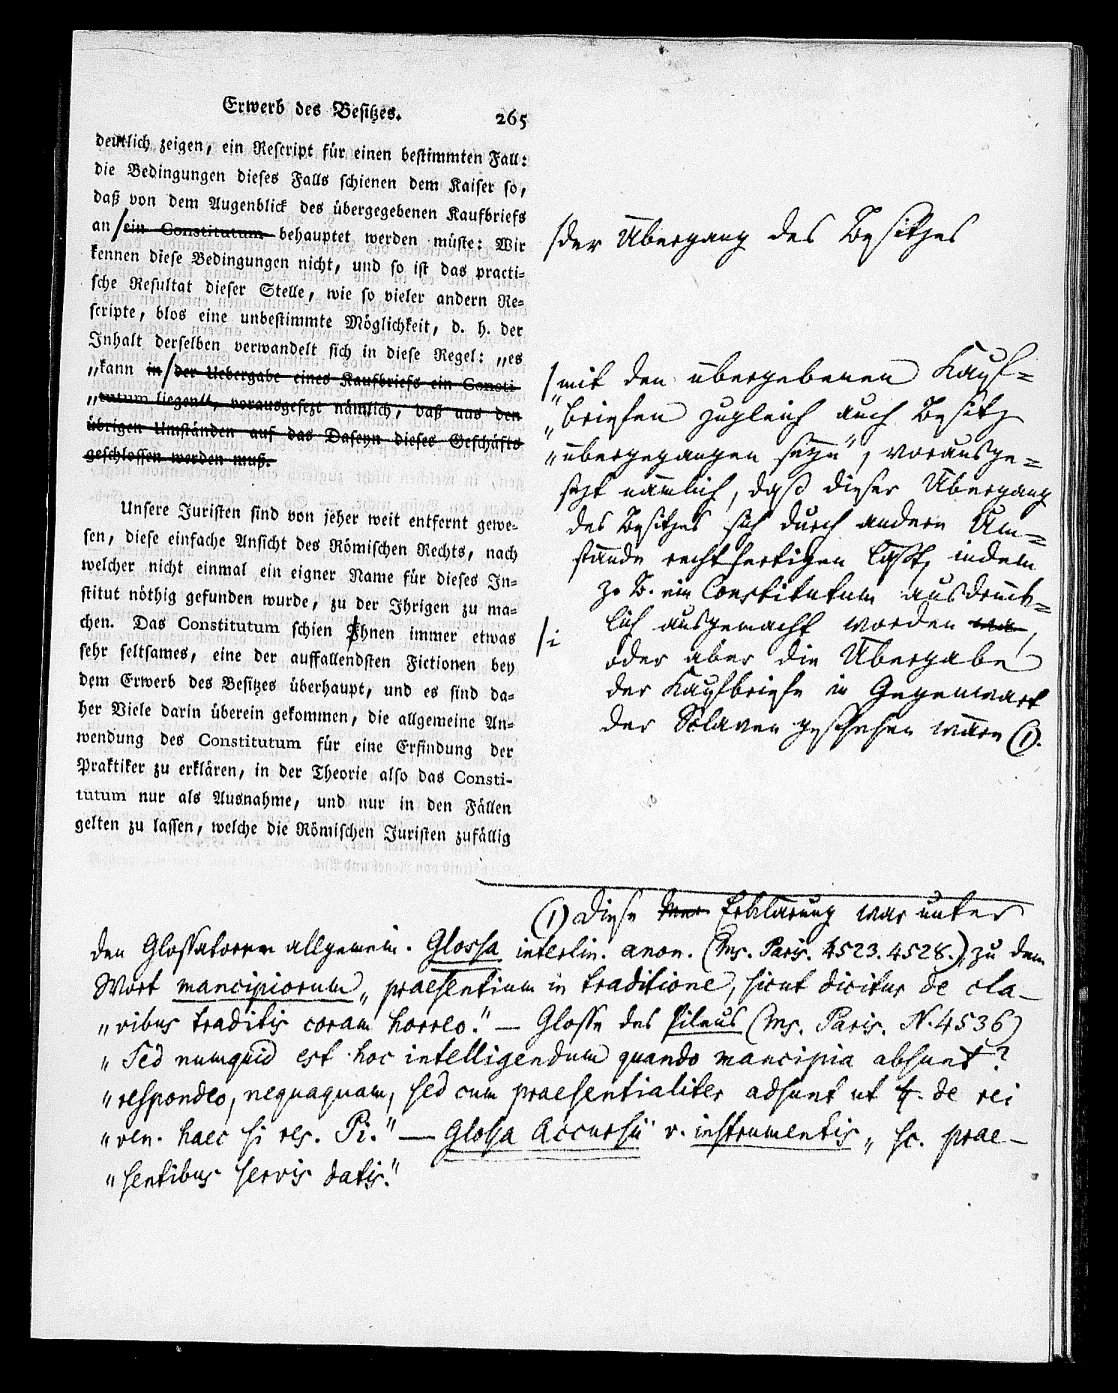 Erwerb des Besitzes. 265
deutlich zeigen, ein Rescript für einen bestimmten Fall:
die Bedingungen dieses Falls schienen dem Kaiser so,
daß von dem Augenblick des übergegebenen Kaufbriefs
an ein Constitutum behauptet werden müste: Wir
kennen diese Bedingungen nicht, und so ist das practi-
sche Resultat dieser Stelle, wie so vieler andern Re-
scripte, blos eine unbestimmte Möglichkeit, d. h. der
Inhalt derselben verwandelt sich in diese Regel: „es
„kann in der Uebergabe eines Kaufbriefs ein Consti-
„tutum liegen“, vorausgesezt nämlich, daß aus den
übrigen Umständen auf das Daseyn dieses Geschäfts
geschlossen werden muß.
Unsere Juristen sind von jeher weit entfernt gewe-
sen, diese einfache Ansicht des Römischen Rechts, nach
welcher nicht einmal ein eigner Name für dieses In-
stitut nöthig gefunden wurde, zu der Ihrigen zu ma-
chen. Das Constitutum schien Ihnen immer etwas
sehr seltsames, eine der auffallendsten Fictionen bey
dem Erwerb des Besitzes überhaupt, und es sind da-
her Viele darin überein gekommen, die allgemeine An-
wendung des Constitutum für eine Erfindung der
Praktiker zu erklären, in der Theorie also das Consti-
tutum nur als Ausnahme, und nur in den Fällen
gelten zu lassen, welche die Römischen Juristen zufällig
/der Übergang des Besitzes
/mit den übergebenen Kauf=
„briefen zugleich auch Besitz
„übergegangen seyn“, vorausge=
sezt nämlich, daß dieser Übergang
des Besitzes sich durch andere Um=
stände rechtfertigen läßt, indem
z. B. ein Constitutum ausdrück=
lich ausgemacht worden wa,
/i
oder aber die Übergabe
der Kaufbriefe in Gegenwart
der Sclaven geschehen wäre (1).
(1) Diese Erklärung war unter
den Glossatoren allgemein. Glossa interlin. anon. (Ms. Paris. 4523. 4528.) zu dem
Wort mancipiorum „praesentium in traditione, sicut dicitur de cla-
„vibus traditis coram horreo.“ — Glosse des Pileus (Ms. Paris. N. 4536)
„Sed numquid est hoc intelligendum quando mancipia absunt?
„respondeo, nequaquam, sed cum praesentialiter adsunt ut ff. de rei
„ven. haec si res. Pi.“ — Glossa Accursii v. instrumentis „sc. prae-
„sentibus servis datis.“